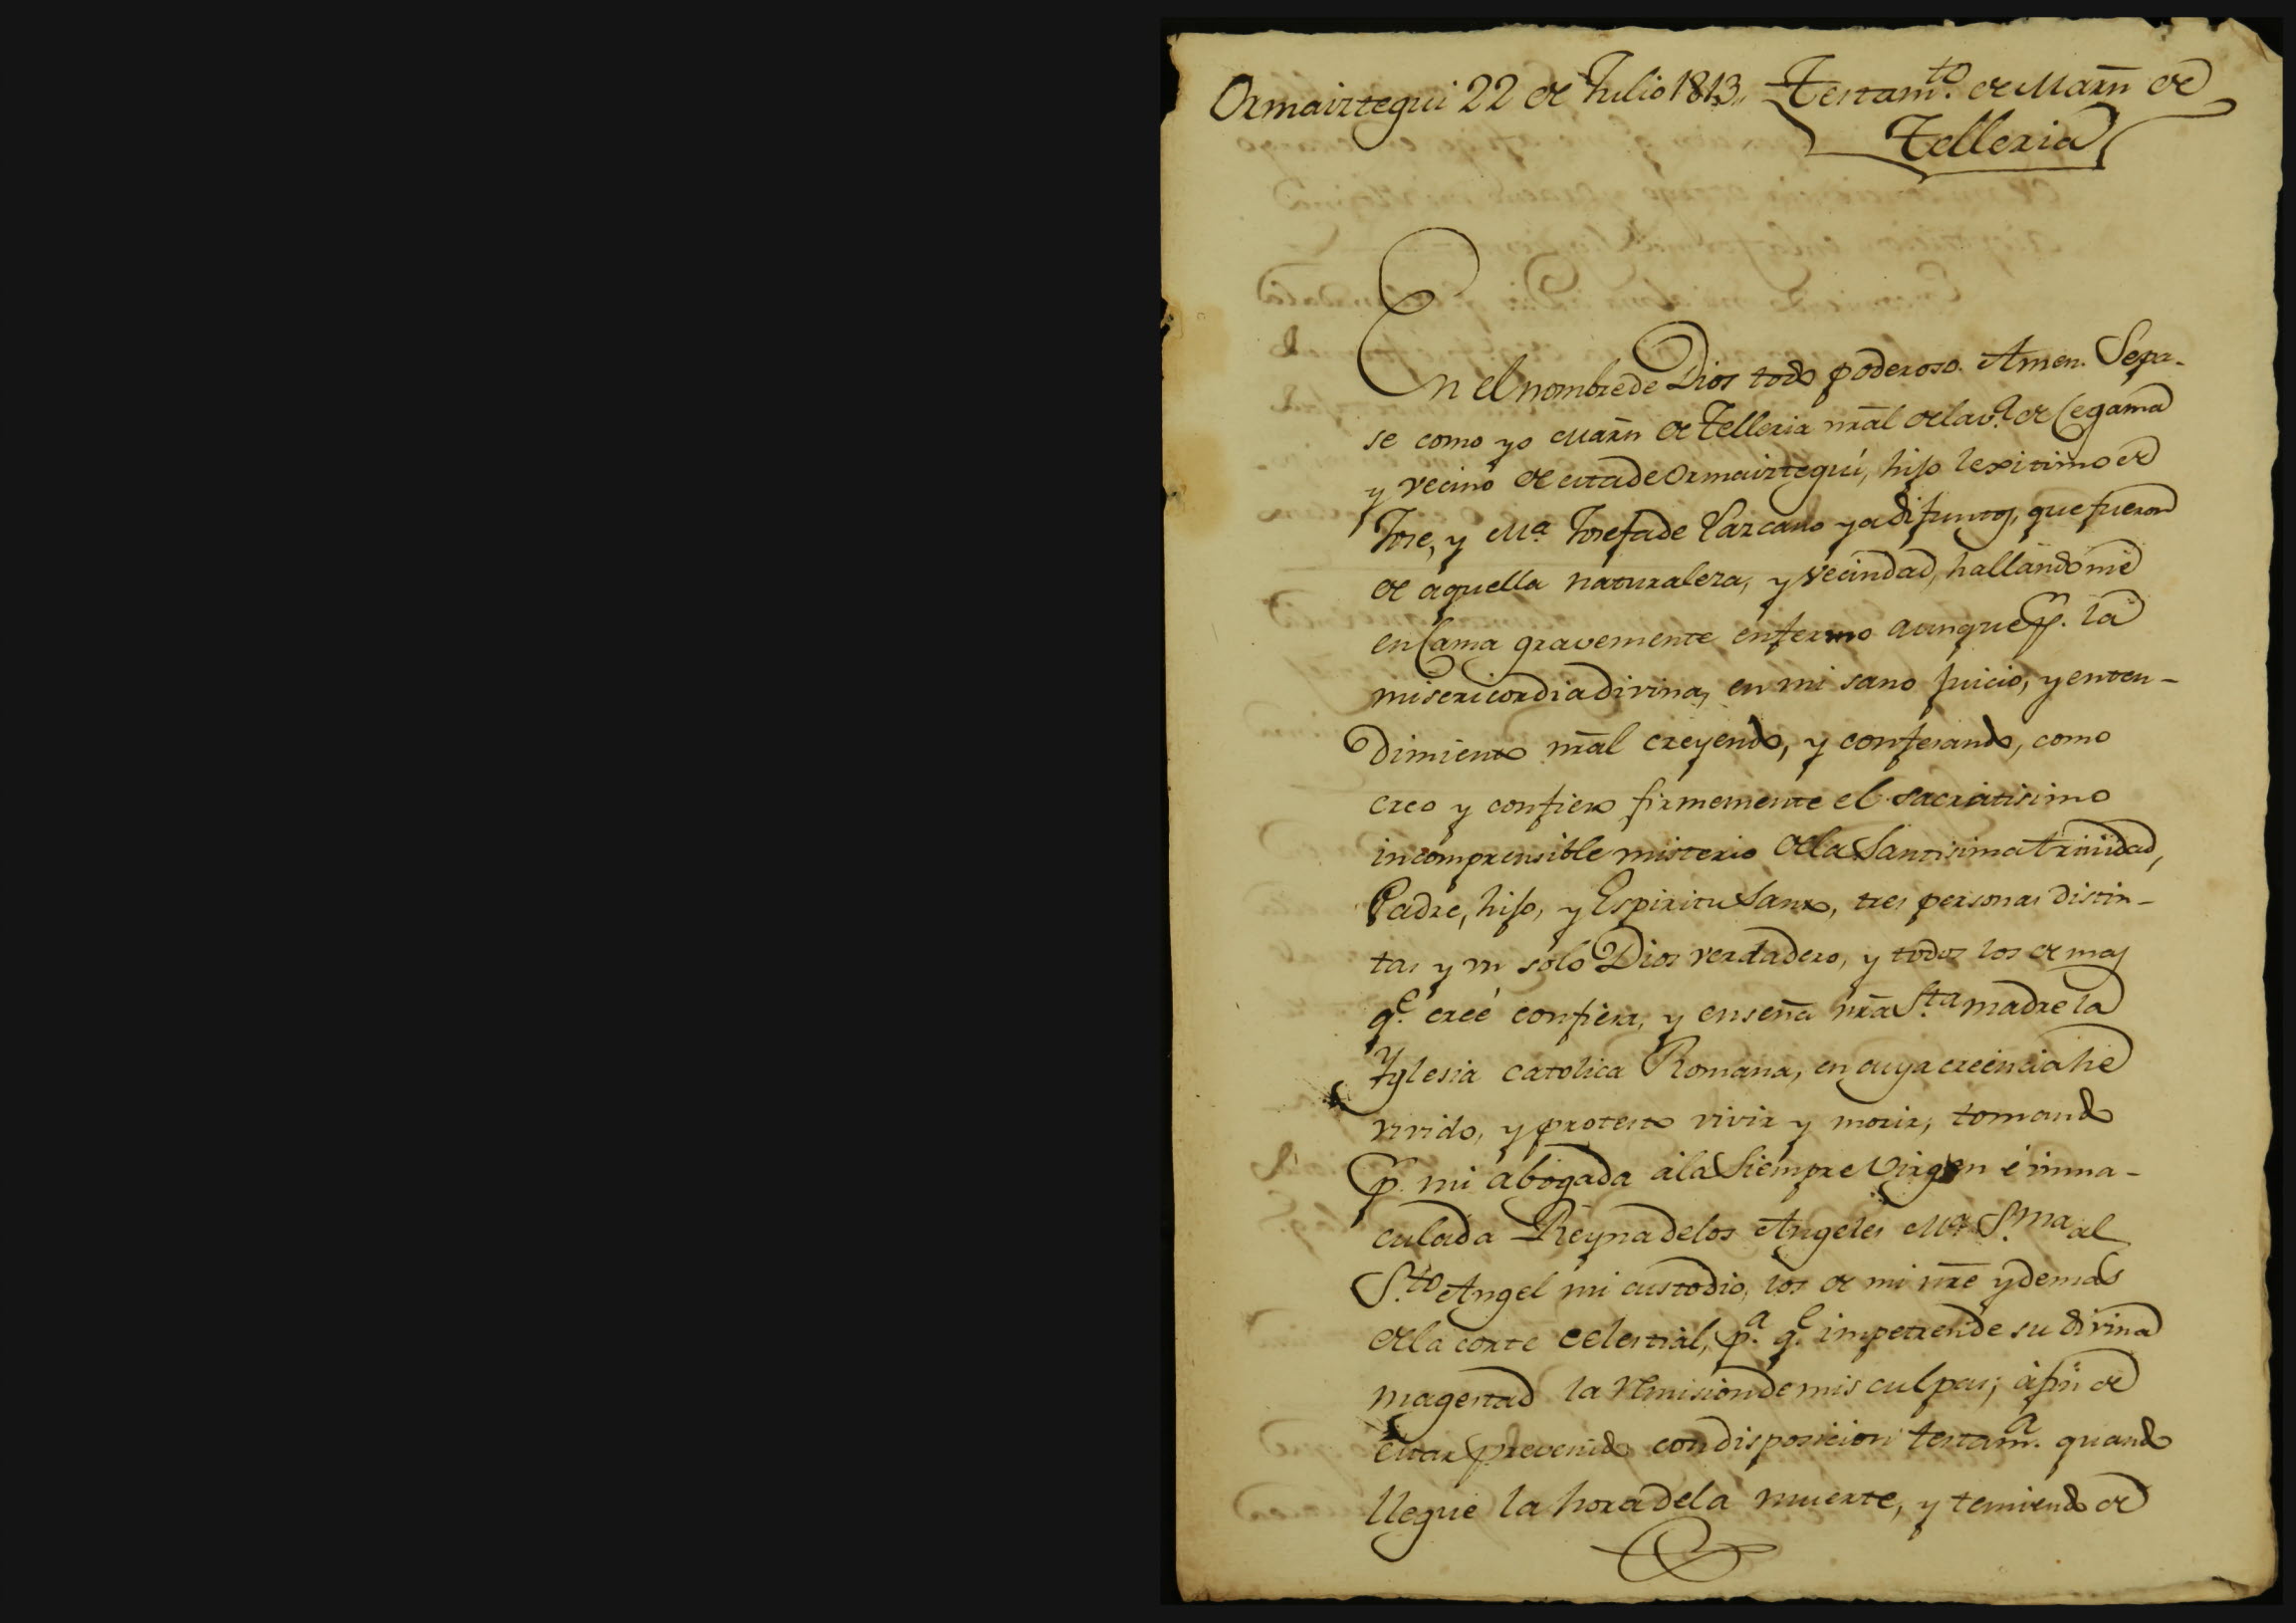 Ormaiztegui 22 de Julio 1813,, Testam.to de Marñ de
Telleria
En el nombre de Dios todo poderoso. Amen. Sepa-
se como yo Marñ de Telleria nr̃al dela v.a de Cegama
y vecino de esta de Ormaiztegui, hijo lexitimo de
Jose, y M.a Josefa de Lazcano ya difuntos, que fueron
de aquella naturaleza, y vecindad, hallandome
en Cama gravemente enfermo aunque p.r la
misericordia divina, en mi sano juicio, y enten-
dimiento nr̃al creyendo, y confesando, como
creo y confieso firmemente el sacratisimo
incomprensible misterio dela Santisima trinidad,
Padre, hijo, y Espiritu Santo, tres personas distin-
tas y un solo Dios verdadero, y todos los demas
q.e creé confiesa, y enseña nr̃a S.ta madre la
Yglesia catolica Romana, en cuya creencia he
vivido, y protesto vivir y morir, tomando
p.r mi abogada á la Siempre Virgen é inma-
culada Reyna delos Angeles M.a S.ma al
S.to Angel mi custodio, los de mi nr̃e y demas
dela corte celestial, p.a q.e impetren de su divina
magestad la remision de mis culpas; á fin de
estar prevenido con disposicion testam.a quando
llegue la hora dela muerte, y temiendo de